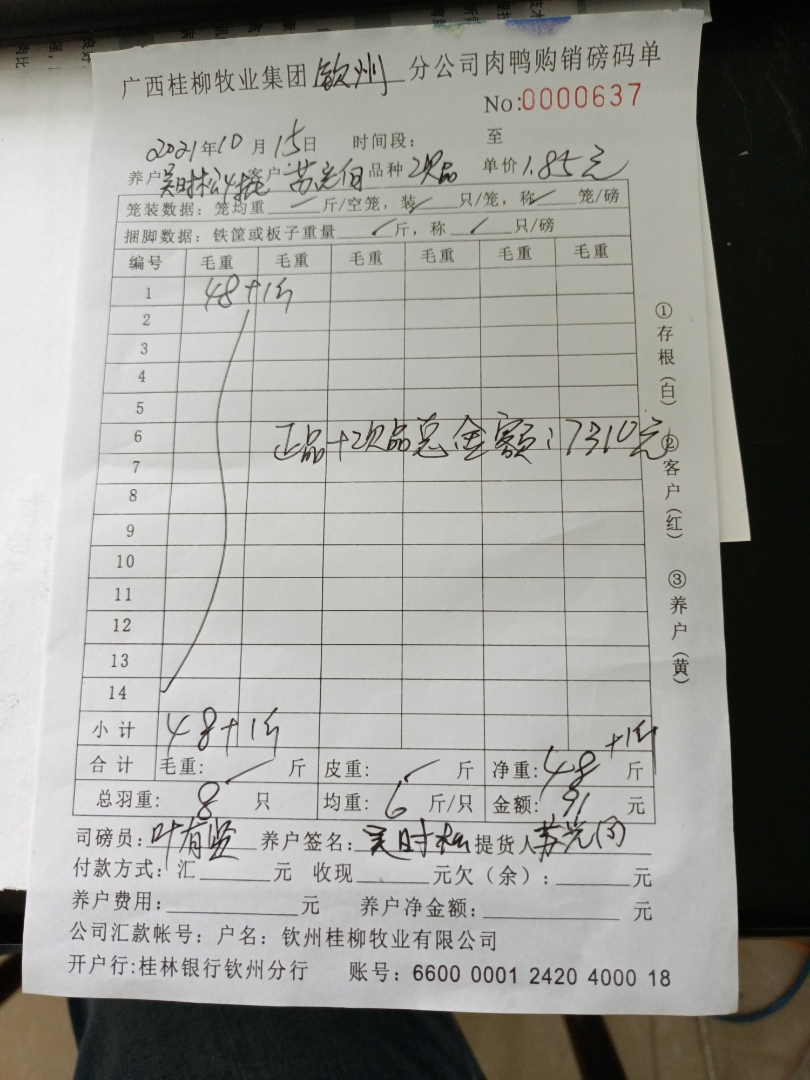 广西桂柳牧业集团钦州分公司肉鸭购销磅码单
No:0000637
2021年10月15日 时间段: 至
养户吴时松 客户 品种次品 单价1.85元
笼装数据：笼均重 斤/空笼，装 只/笼，称 笼/磅
捆脚数据：铁筐或板子重量 斤，称 只/磅
编号 毛重 毛重 毛重 毛重 毛重 毛重
1 48+1斤
2
3
4
5
6
正品+次品总金额:7310元
7
8
9
10
11
12
13
14
小计 48+1斤
合计 毛重: 斤 皮重: 斤 净重:48+1斤 斤
总羽重: 8 只 均重: 6 斤/只 金额: 91 元
司磅员:叶有坚 养户签名:吴时松 提货人
付款方式: 汇 元 收现 元欠（余）: 元
养户费用: 元 养户净金额: 元
公司汇款帐号：户名：钦州桂柳牧业有限公司
开户行:桂林银行钦州分行 账号：6600 0001 2420 4000 18
①存根（白）②客户（红）③养户（黄）